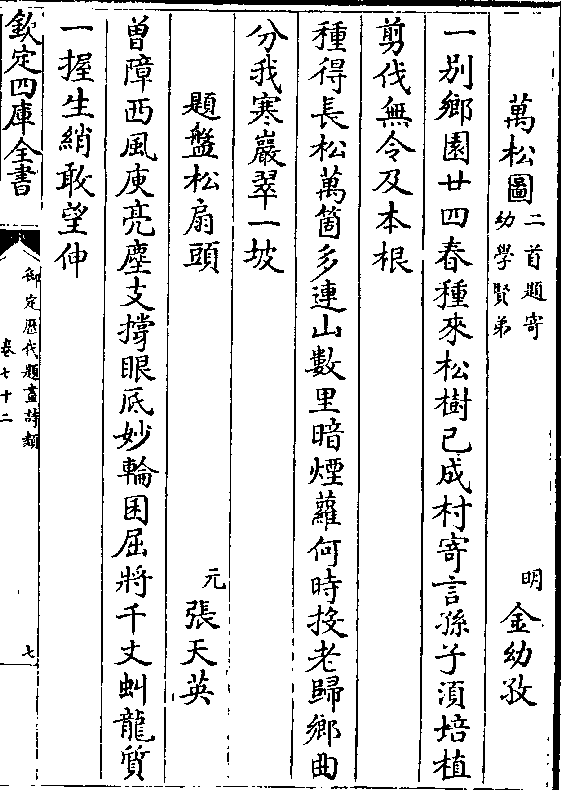 萬松圖二首題寄幼學賢弟 明 金幼孜
一別鄉園廿四春種來松樹已成村寄言孫子湏培植
剪伐無令及本根
種得長松萬箇多連山數里暗煙蘿何時投老歸鄉曲
分我寒巖翠一坡
題盤松扇頭 元 張天英
曽障西風庾亮塵支撐眼底妙輪囷屈將千丈虯龍質
一握生綃敢望伸
欽定四庫全書
御定歴代題畫詩類
卷七十二
七